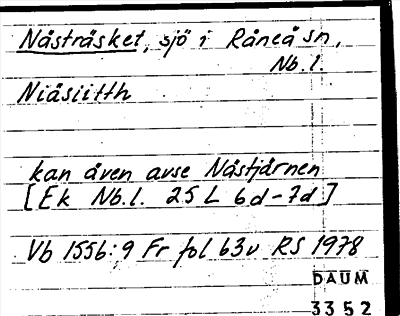 Nåsträsket, sjö i Råneå sn,
Nb. l.
Niåsiitth
kan även avse Nåstjärnen
[Ek Nb. l. 25 L 6d-7d]
Vb 1556:9 Fr fol 63v RS 1978
DAUM
3352